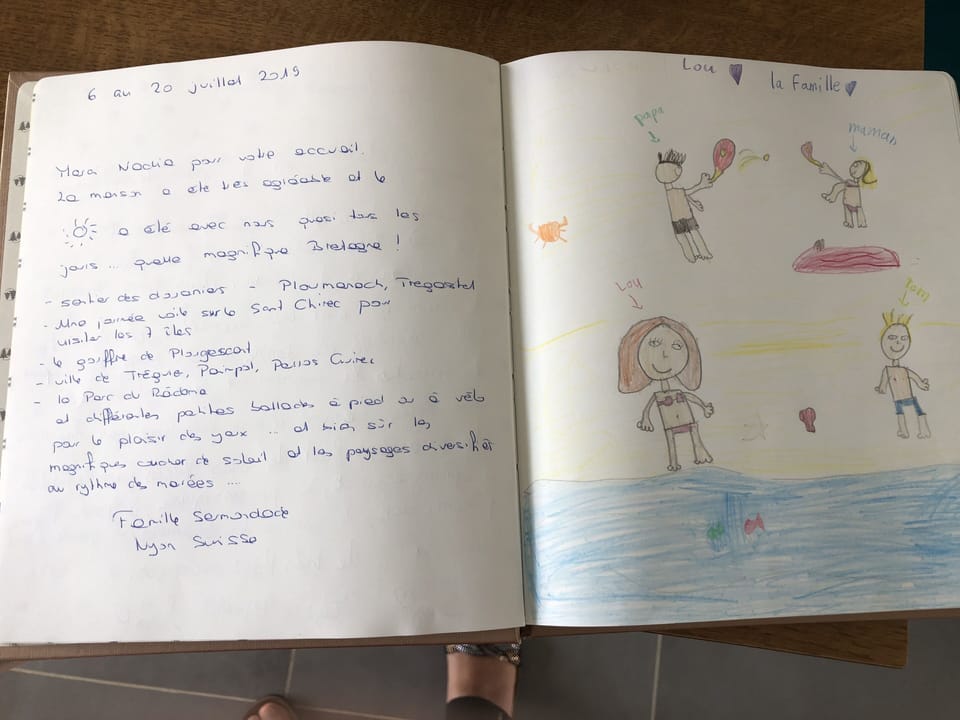 6 au 20 juillet 2019
Merci Nadia pour votre accueil.
La maison a été très agréable et le
a été avec nous quasi tous les
jours ... quelle magnifique Bretagne !
- sentier des douaniers - Ploumanach, Tregastel
- Une journée voile sur le Sant Chirec pour
visiter les 7 îles
- le gouffre de Plougescant
- ville de Tréguier, Paimpol, Perros Guirec
- le Parc du Radôme
et différentes petites ballades à pied ou à vélo
pour le plaisir des yeux ... et bien sûr les
magnifiques coucher de soleil et les paysages
au rythme des marées ....
Famille
Nyon Suisse
Lou
la Famille
papa
maman
Lou